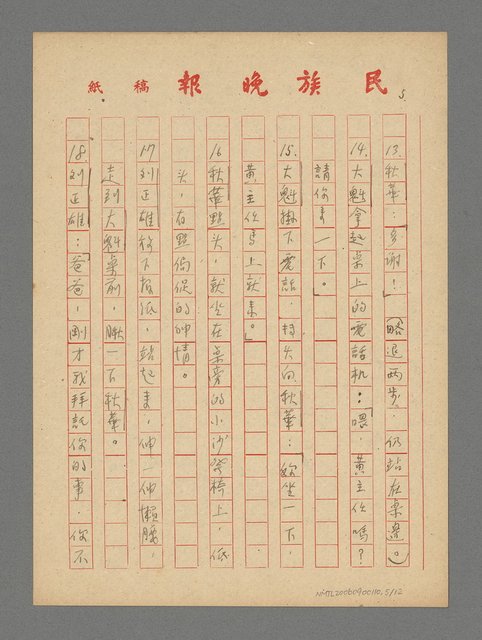 民族晚報 稿紙
5.
13.秋華:多謝!(略退兩步,仍站在桌邊。)
14.大魁拿起桌上的電話机:「喂,黃主任嗎?
請你来一下。」
15.大魁掛下電話,轉头向秋華:「你坐一下,
黃主任馬上就来。」
16.秋華點头,就坐在桌旁的小沙發椅上,低
头,有點侷促的神情。
17.刘正雄放下報紙,站起来,伸一伸懶腰
走到大魁桌前,瞅一下秋華。
18.刘正雄:「爸爸,剛才我拜託你的事,你不
NMTL20060900110,5/12